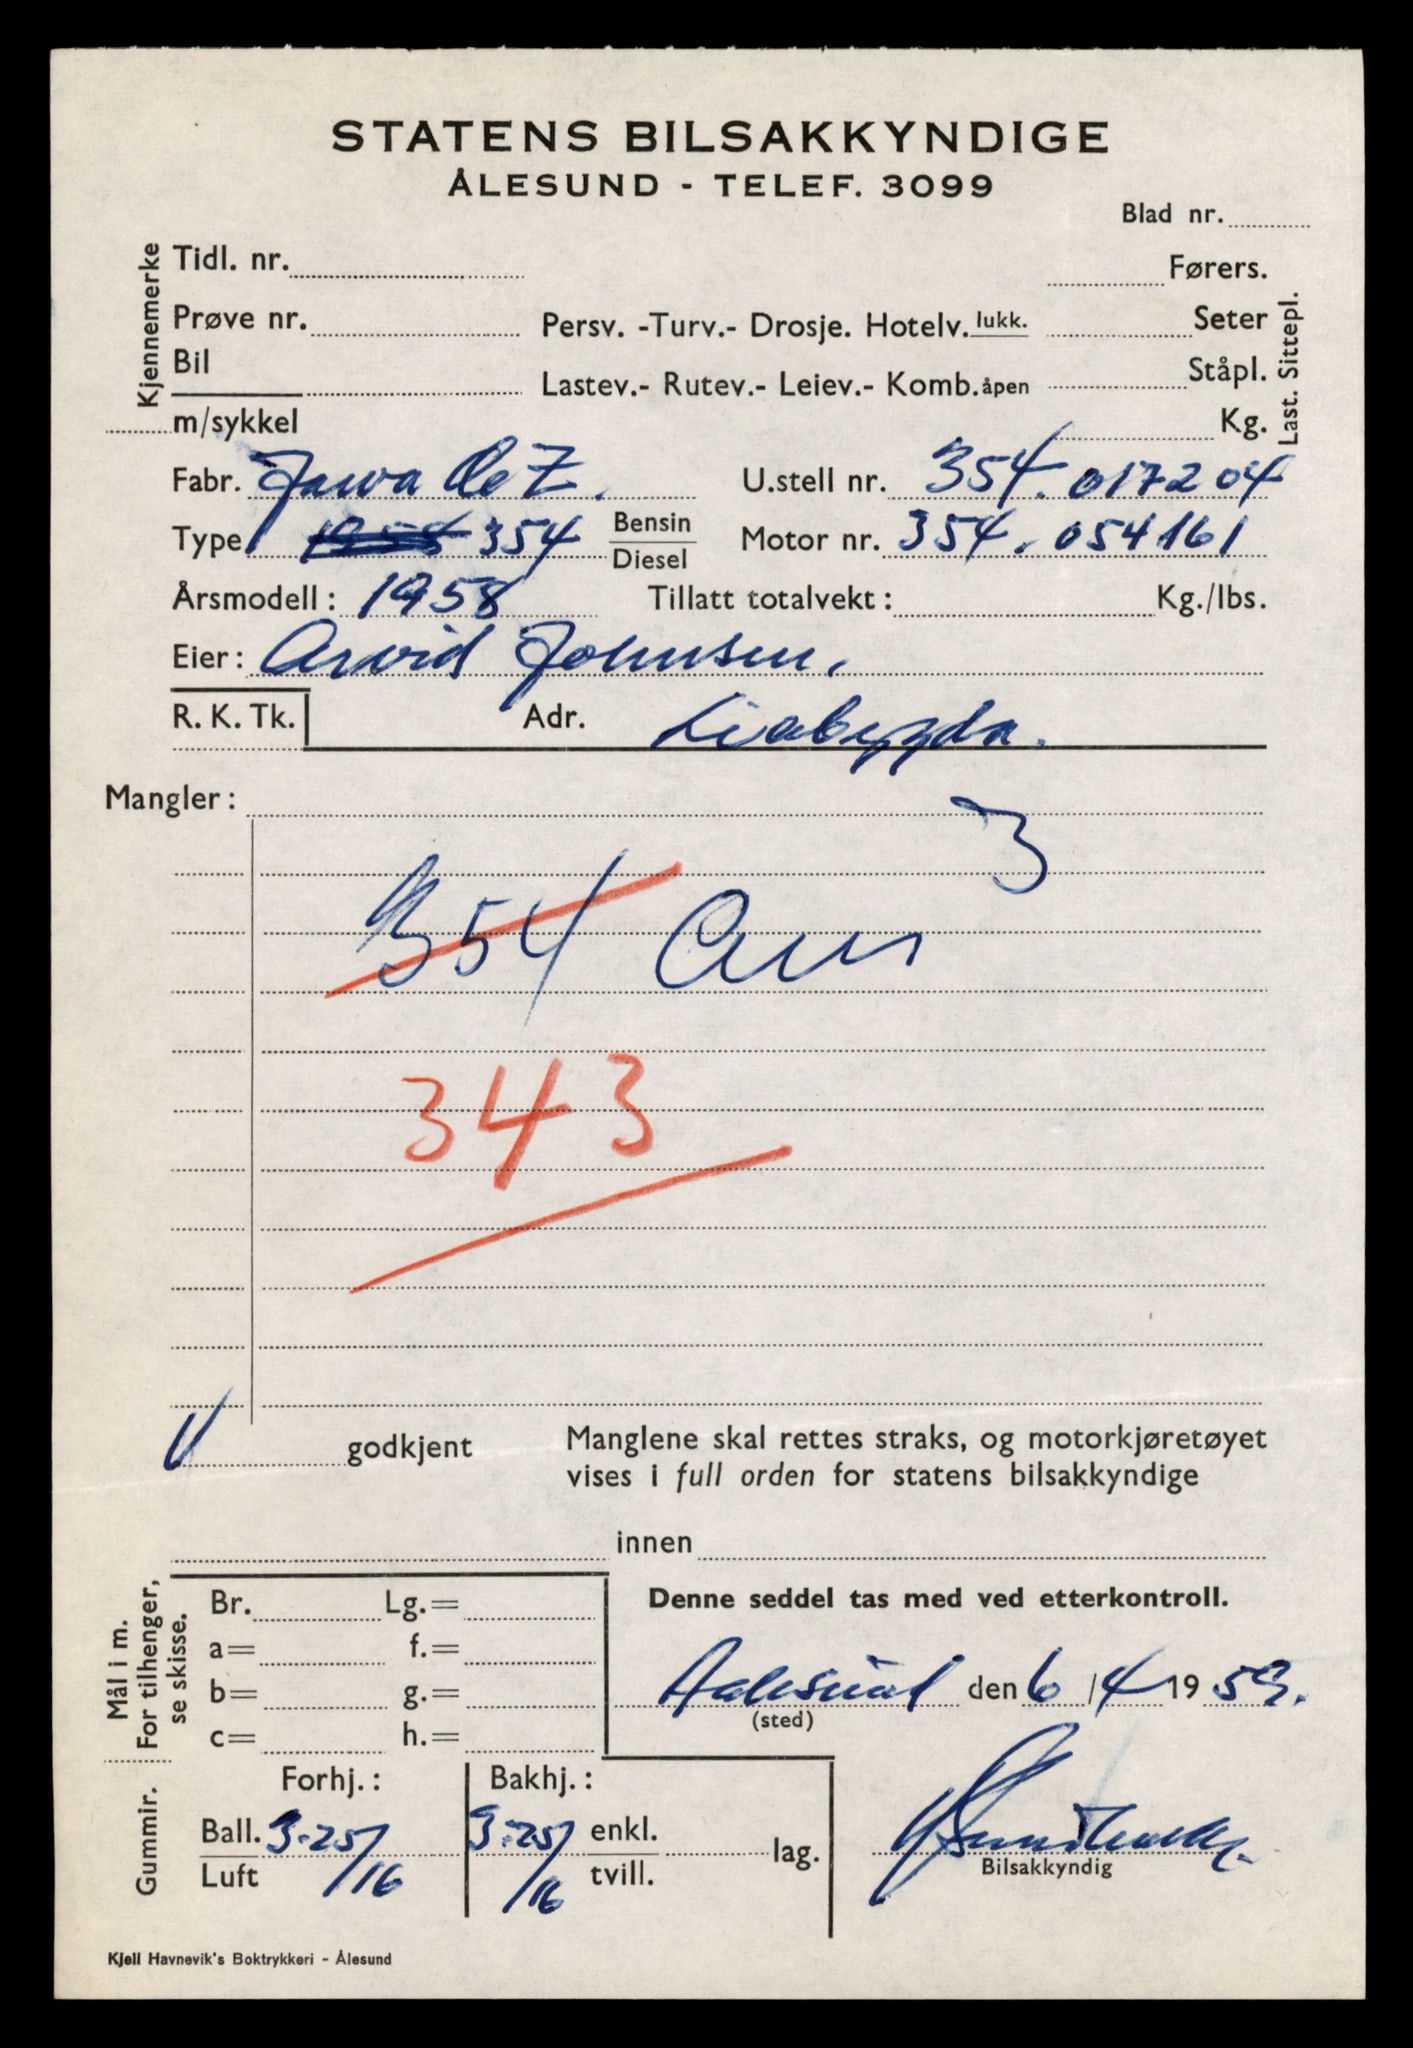 STATENS BILSAKKYNDIGE
ÅLESUND - TELEF. 3099
Blad nr.
Kjennemerke
Tidl. nr. Førers.
Prøve nr. Persv. -Turv.- Drosje. Hotelv. lukk. Seter
Bil
Lastev.- Rutev.- Leiev.- Komb. åpen Ståpl.
m/sykkel Kg.
Last. Sittepl.
Fabr. Jawa CZ. U.stell nr. 354.017204
Type 354 Bensin Diesel Motor nr. 354.054161
Årsmodell: 1958 Tillatt totalvekt: Kg./lbs.
Eier: Arvid Johnsen.
R. K. Tk. Adr. Liabygda.
Mangler:
3
354
343
godkjent Manglene skal rettes straks, og motorkjøretøyet
vises i full orden for statens bilsakkyndige
innen
Mål i m.
For tilhenger,
se skisse.
Br. Lg.= Denne seddel tas med ved etterkontroll.
a= f.=
b= g.= Aalesund den 6/4 1959.
(sted)
c= h.=
Gummir.
Forhj.: Bakhj.:
Ball. 3.25/16 3.25/16 enkl. lag.
Luft tvill.
Bilsakkyndig
Kjell Havnevik's Boktrykkeri - Ålesund